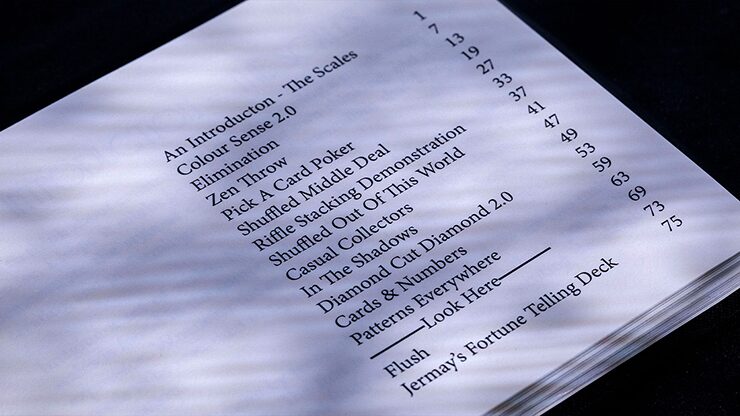 An Introducton - The Scales 1
Colour Sense 2.0 7
Elimination 13
Zen Throw 19
Pick A Card Poker 27
Shuffled Middle Deal 33
Riffle Stacking Demonstration 37
Shuffled Out Of This World 41
Casual Collectors 47
In The Shadows 49
Diamond Cut Diamond 2.0 53
Cards & Numbers 59
Patterns Everywhere 63
——Look Here—— 69
Flush 73
Jermay's Fortune Telling Deck 75